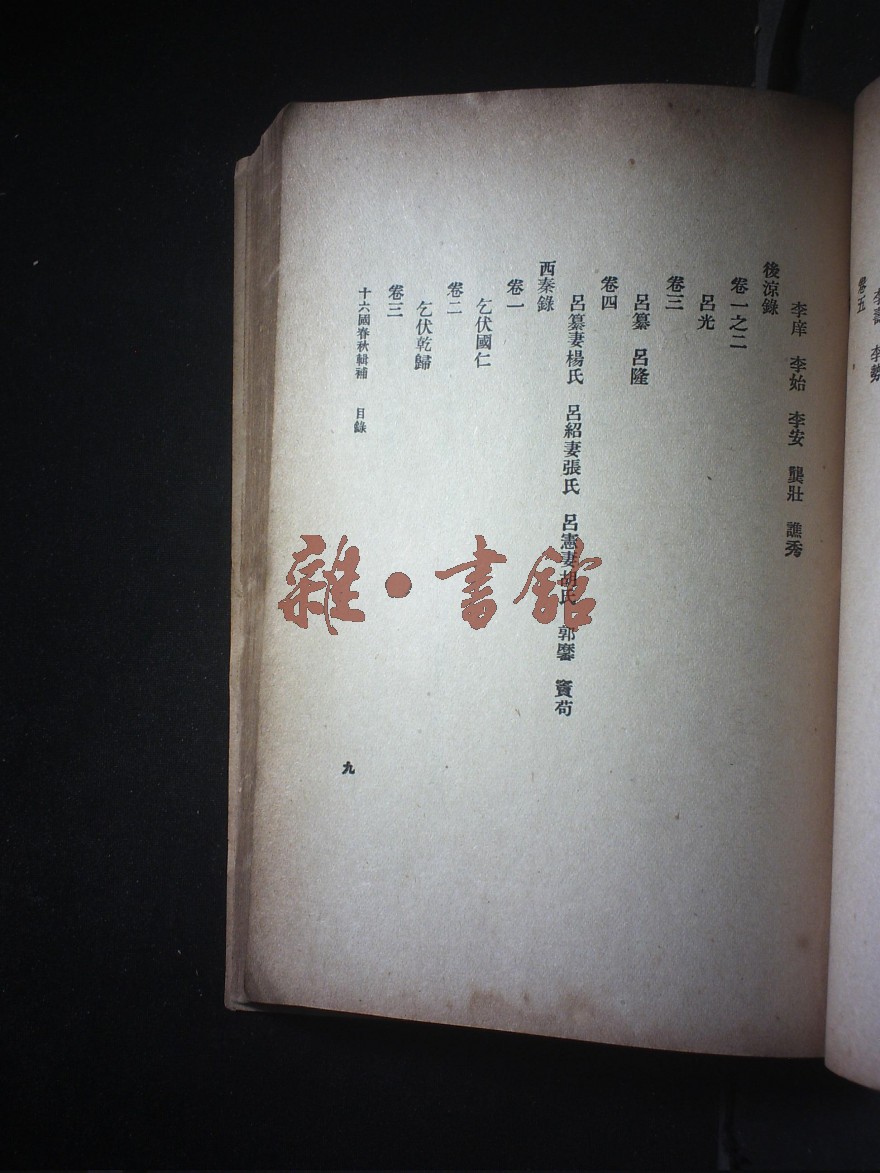 李壽　李勢
卷五
李庠　李始　李安　龔壯　譙秀
後涼錄
卷一之二
呂光
卷三
呂纂　呂隆
卷四
呂纂妻楊氏　呂紹妻張氏　呂憲妻胡氏　郭黁　竇苟
西秦錄
卷一
乞伏國仁
卷二
乞伏乾歸
卷三
十六國春秋輯補　目錄
九
雜·書館